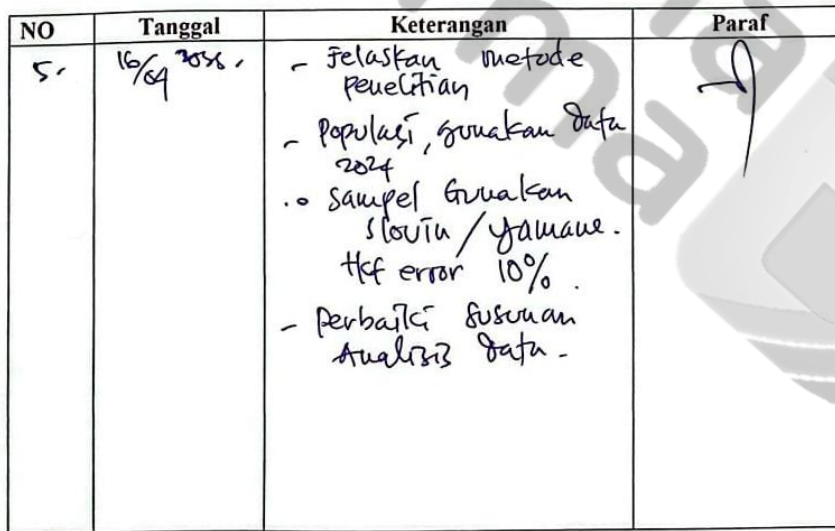 NO Tanggal Keterangan Paraf
5. 16/04 - Jelaskan metode
penelitian
- Populasi, gunakan data
2024
• Sampel Gunakan
Slovin / Yamane.
error 10%.
- Perbaiki susunan
Analisis data -